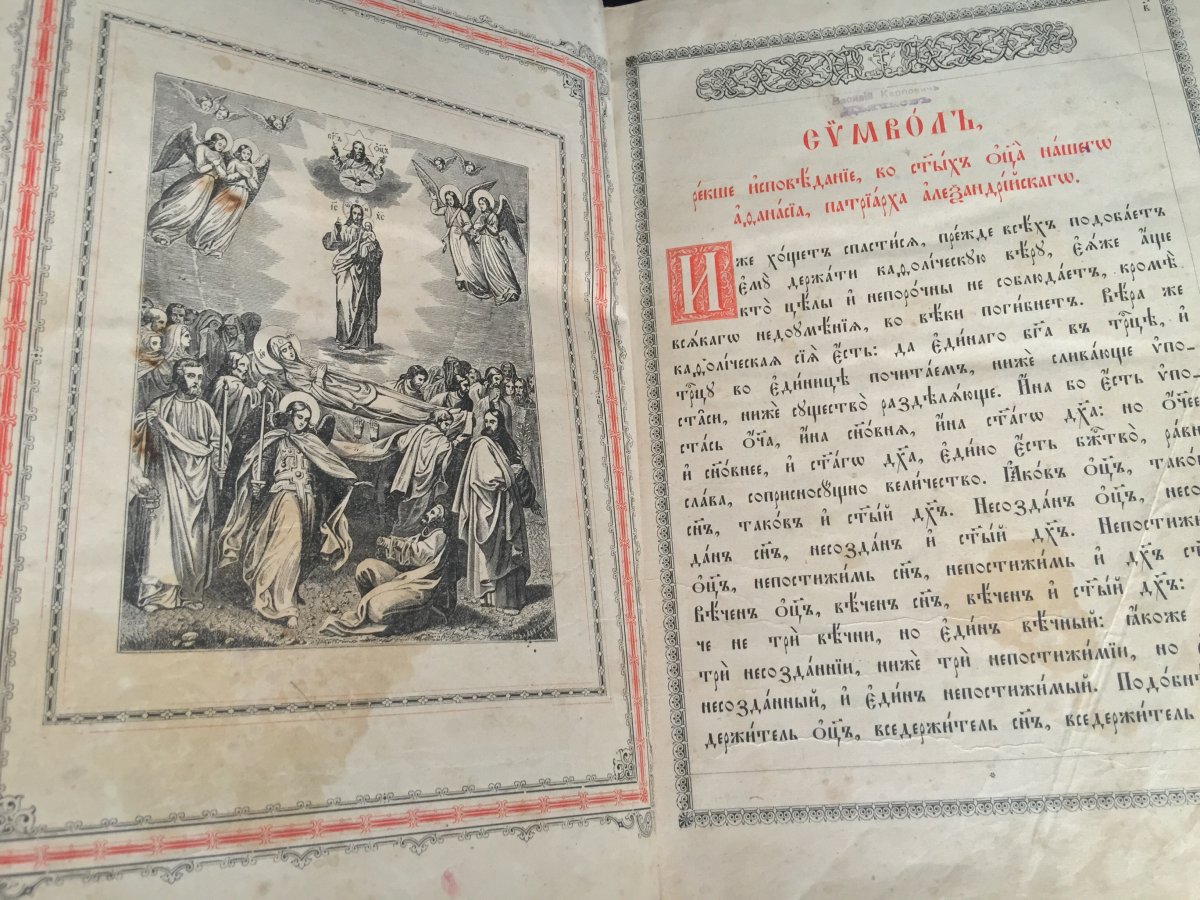 ІС ХС
Василій Карповичъ
СѴМВО́ЛЪ,
ре́кше и҆сповѣ́данїе, во ст҃ы́хъ ѻ҆ц҃а̀ на́шегѡ
а҆ѳана́сїа, патрїа́рха а҆леѯандрі́йскагѡ.
И҆́же хо́щетъ спасти́сѧ, пре́жде всѣ́хъ подоба́етъ
є҆мꙋ̀ держа́ти каѳоли́ческꙋю вѣ́рꙋ, є҆ѧ́же а҆́ще
кто̀ цѣ́лы и҆ непоро́чны не соблюда́етъ, кромѣ̀
всѧ́кагѡ недоꙋмѣ́нїѧ, во вѣ́ки поги́бнетъ. Вѣ́ра же
каѳоли́ческаѧ сїѧ̀ є҆́сть: да є҆ди́наго бг҃а въ трⷪ҇цѣ, и҆
трⷪ҇цꙋ во є҆ди́ницѣ почита́емъ, нижѐ слива́юще ѵ҆по-
ста̑си, нижѐ сꙋщество̀ раздѣлѧ́юще. И҆́на бо є҆́сть ѵ҆по-
ста́сь ѻ҆́ч҃а, и҆́на сн҃о́внѧ, и҆́на ст҃а́гѡ дх҃а: но ѻ҆́ч҃ее
и҆ сн҃о́внее, и҆ ст҃а́гѡ дх҃а, є҆ди́но є҆́сть бж҃тво̀, ра́вна
сла́ва, соприсносꙋ́щно вели́чество. Ꙗ҆ко́въ ѻ҆ц҃ъ, тако́въ
сн҃ъ, тако́въ и҆ ст҃ы́й дх҃ъ. Несо́зданъ ѻ҆ц҃ъ, несо́
данъ сн҃ъ, несо́зданъ и҆ ст҃ы́й дх҃ъ. Непостижи́
ѻ҆ц҃ъ, непостижи́мь сн҃ъ, непостижи́мь и҆ дх҃ъ ст҃
Вѣ́ченъ ѻ҆ц҃ъ, вѣ́ченъ сн҃ъ, вѣ́ченъ и҆ ст҃ы́й дх҃ъ:
че не трѝ вѣ́чни, но є҆ди́нъ вѣ́чный: ꙗ҆́коже
трѝ несозда́ннїи, нижѐ трѝ непостижи́мїи, но
несозда́нный, и҆ є҆ди́нъ непостижи́мый. Подо́бнѣ
держи́тель ѻ҆ц҃ъ, вседержи́тель сн҃ъ, вседержи́тель